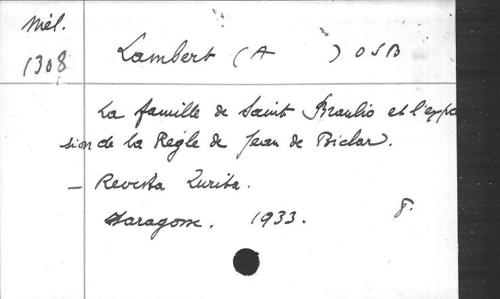 Mél.
1308
Lambert (A ) OSB
La famille de Saint Braulio et l'expan
sion de la Règle de Jean de Biclar.
– Revista Zurita.
Saragosse. 1933. 8.